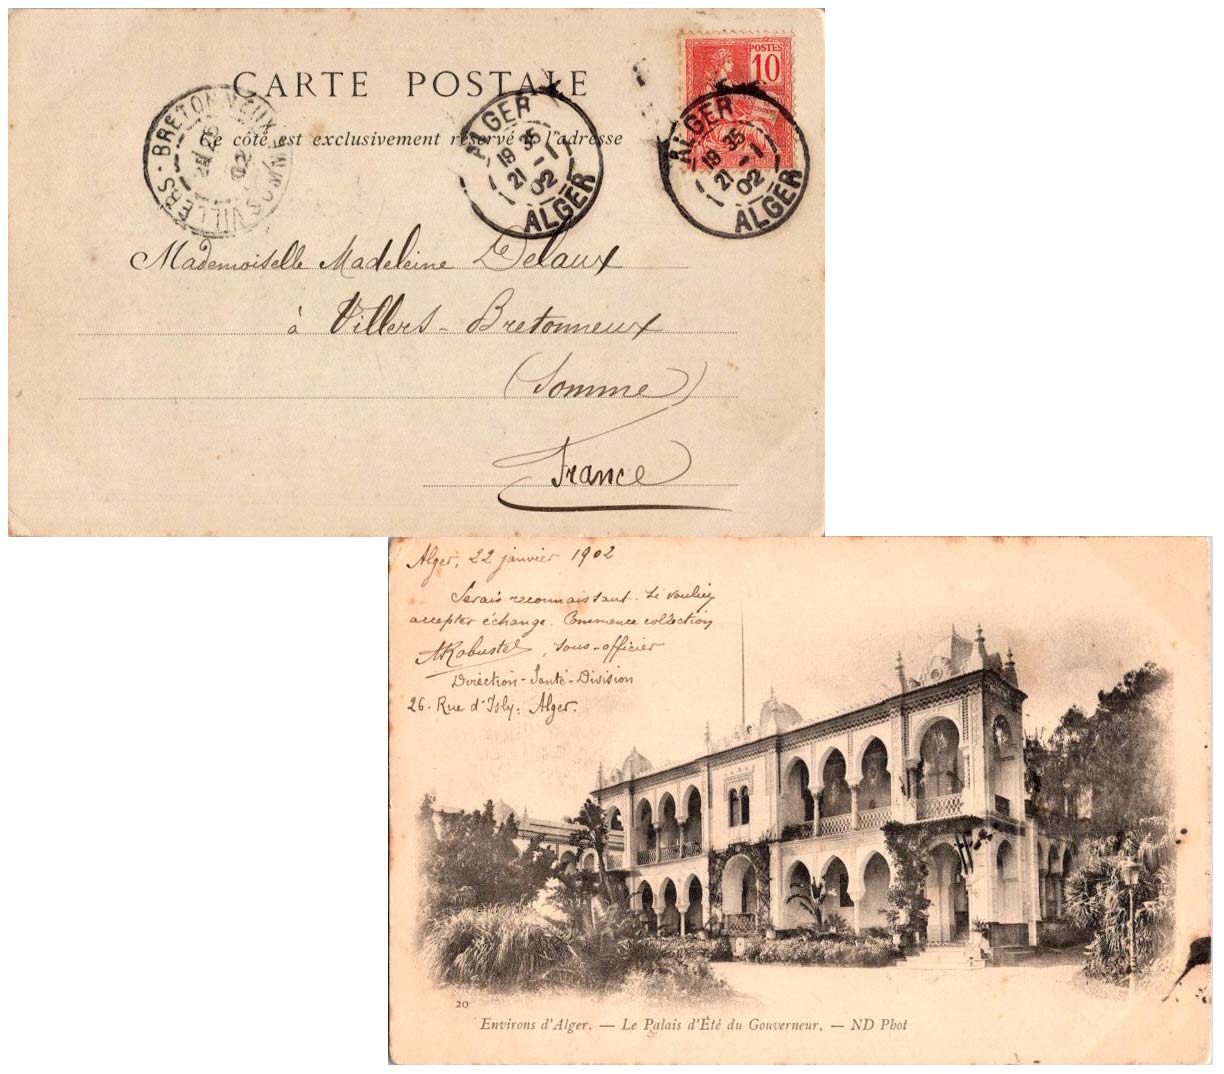 CARTE POSTALE
Ce côté est exclusivement réservé à l'adresse
POSTES
10
VILLERS-BRETONNEUX
02
ALGER
19 35
21 -1
02
ALGER
ALGER
19 35
21 -1
02
ALGER
Mademoiselle Madeleine Delaux
à Villers-Bretonneux
(Somme)
France
Alger, 22 janvier 1902
Serais reconnaissant. Si vouliez
accepter échange. Commence collection
ARobustel, sous-officier
Direction-Santé-Division
26. Rue d'Isly. Alger.
20
Environs d'Alger. — Le Palais d'Été du Gouverneur. — ND Phot